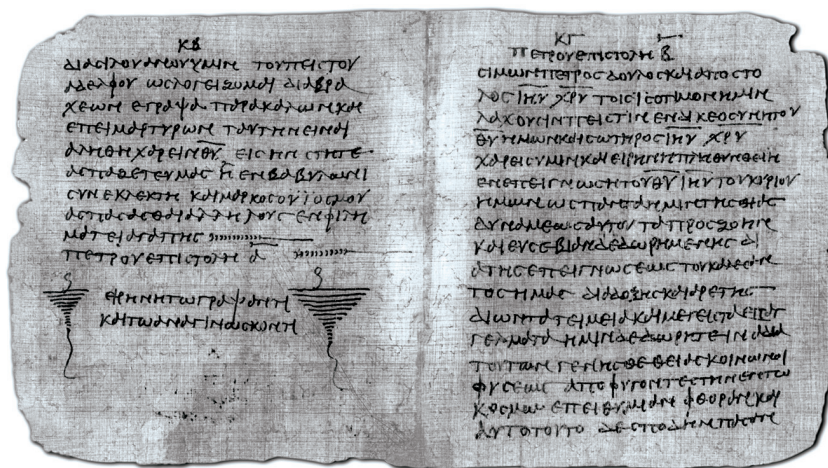 ΚΒ
ΔΙΑ ϹΙΛΟΥΑΝΟΥ ΥΜΙΝ ΤΟΥ ΠΙϹΤΟΥ
ΑΔΕΛΦΟΥ ΩϹ ΛΟΓΕΙΖΟΜΑΙ ΔΙΑ ΒΡΑ
ΧΕΩΝ ΕΓΡΑΨΑ ΠΑΡΑΚΑΛΩΝ ΚΑΙ
ΕΠΕΙΜΑΡΤΥΡΩΝ ΤΑΥΤΗΝ ΕΙΝΑΙ
ΑΛΗΘΗ ΧΑΡΕΙΝ Θ̅Υ̅ ΕΙϹ ΗΝ ϹΤΗΤΕ
ΑϹΠΑΖΕΤΕ ΥΜΑϹ Η ΕΝ ΒΑΒΥΛΩΝΙ
ϹΥΝΕΚΛΕΚΤΗ ΚΑΙ ΜΑΡΚΟϹ Ο ΥΙΟϹ ΜΟΥ
ΑϹΠΑϹΑϹΘΑΙ ΑΛΛΗΛΟΥϹ ΕΝ ΦΙΛΗ
ΜΑΤΕΙ ΑΓΑΠΗϹ
ΠΕΤΡΟΥ ΕΠΙϹΤΟΛΗ Α̅
ΕΙΡΗΝΗ ΤΩ ΓΡΑΨΑΝΤΙ
ΚΑΙ ΤΩ ΑΝΑΓΙΝΩϹΚΟΝΤΙ
ΚΓ
ΠΕΤΡΟΥ ΕΠΙϹΤΟΛΗ Β̅
ϹΙΜΩΝ ΠΕΤΡΟϹ ΔΟΥΛΟϹ ΚΑΙ ΑΠΟϹΤΟ
ΛΟϹ Ι̅Η̅Υ̅ Χ̅Ρ̅Υ̅ ΤΟΙϹ ΙϹΟΤΙΜΟΝ ΗΜΙΝ
ΛΑΧΟΥϹΙΝ ΠΙϹΤΙΝ ΕΝ ΔΙΚΕΟϹΥΝΗ ΤΟΥ
Θ̅Υ̅ ΗΜΩΝ ΚΑΙ ϹΩΤΗΡΟϹ Ι̅Η̅Υ̅ Χ̅Ρ̅Υ̅
ΧΑΡΕΙϹ ΥΜΙΝ ΚΑΙ ΕΙΡΗΝΗ ΠΛΗΘΥΝΘΕΙΗ
ΕΝ ΕΠΕΙΓΝΩϹΗ ΤΟΥ Θ̅Υ̅ Ι̅Η̅Υ̅ ΤΟΥ ΚΥΡΙΟΥ
ΗΜΩΝ ΩϹ ΠΑΝΤΑ ΗΜΙΝ ΤΗϹ ΘΙΑϹ
ΔΥΝΑΜΕΩϹ ΑΥΤΟΥ ΤΑ ΠΡΟϹ ΖΩΗΝ
ΚΑΙ ΕΥϹΕΒΙΑΝ ΔΕΔΩΡΗΜΕΝΗϹ ΔΙ
Α ΤΗϹ ΕΠΕΙΓΝΩϹΕΩϹ ΤΟΥ ΚΑΛΕϹΑΝ
ΤΟϹ ΗΜΑϹ ΔΙΑ ΔΟΞΗϹ ΚΑΙ ΑΡΕΤΗϹ
ΔΙ ΩΝ ΤΑ ΤΕΙΜΕΙΑ ΚΑΙ ΜΕΓΕΙϹΤΑ ΕΠΑΓ
ΓΕΛΜΑΤΑ ΗΜΙΝ ΔΕΔΩΡΗΤΕ ΙΝΑ ΔΙΑ
ΤΟΥΤΩΝ ΓΕΝΗϹΘΕ ΘΕΙΑϹ ΚΟΙΝΩΝΟΙ
ΦΥϹΕΩϹ ΑΠΟΦΥΓΟΝΤΕϹ ΤΗΝ ΕΝ ΤΩ
ΚΟϹΜΩ ΕΠΕΙΘΥΜΙΑΝ ΦΘΟΡΑΝ ΚΑΙ
ΑΥΤΟ ΤΟΥΤΟ ΔΕ ϹΠΟΥΔΗΝ ΠΑϹΑΝ